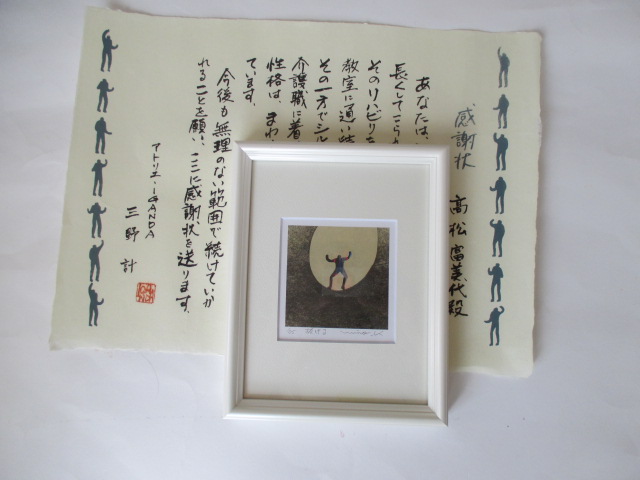 感謝状
高松富美代殿
あなたは、
長くしてこられ
そのリハビリを
教室に通い続
その一方でシル
介護職に着
性格は、まわ
ています。
今後も無理のない範囲で続けていか
れることを願い、ここに感謝状を送ります。
アトリエ・IGANDA
三野 計